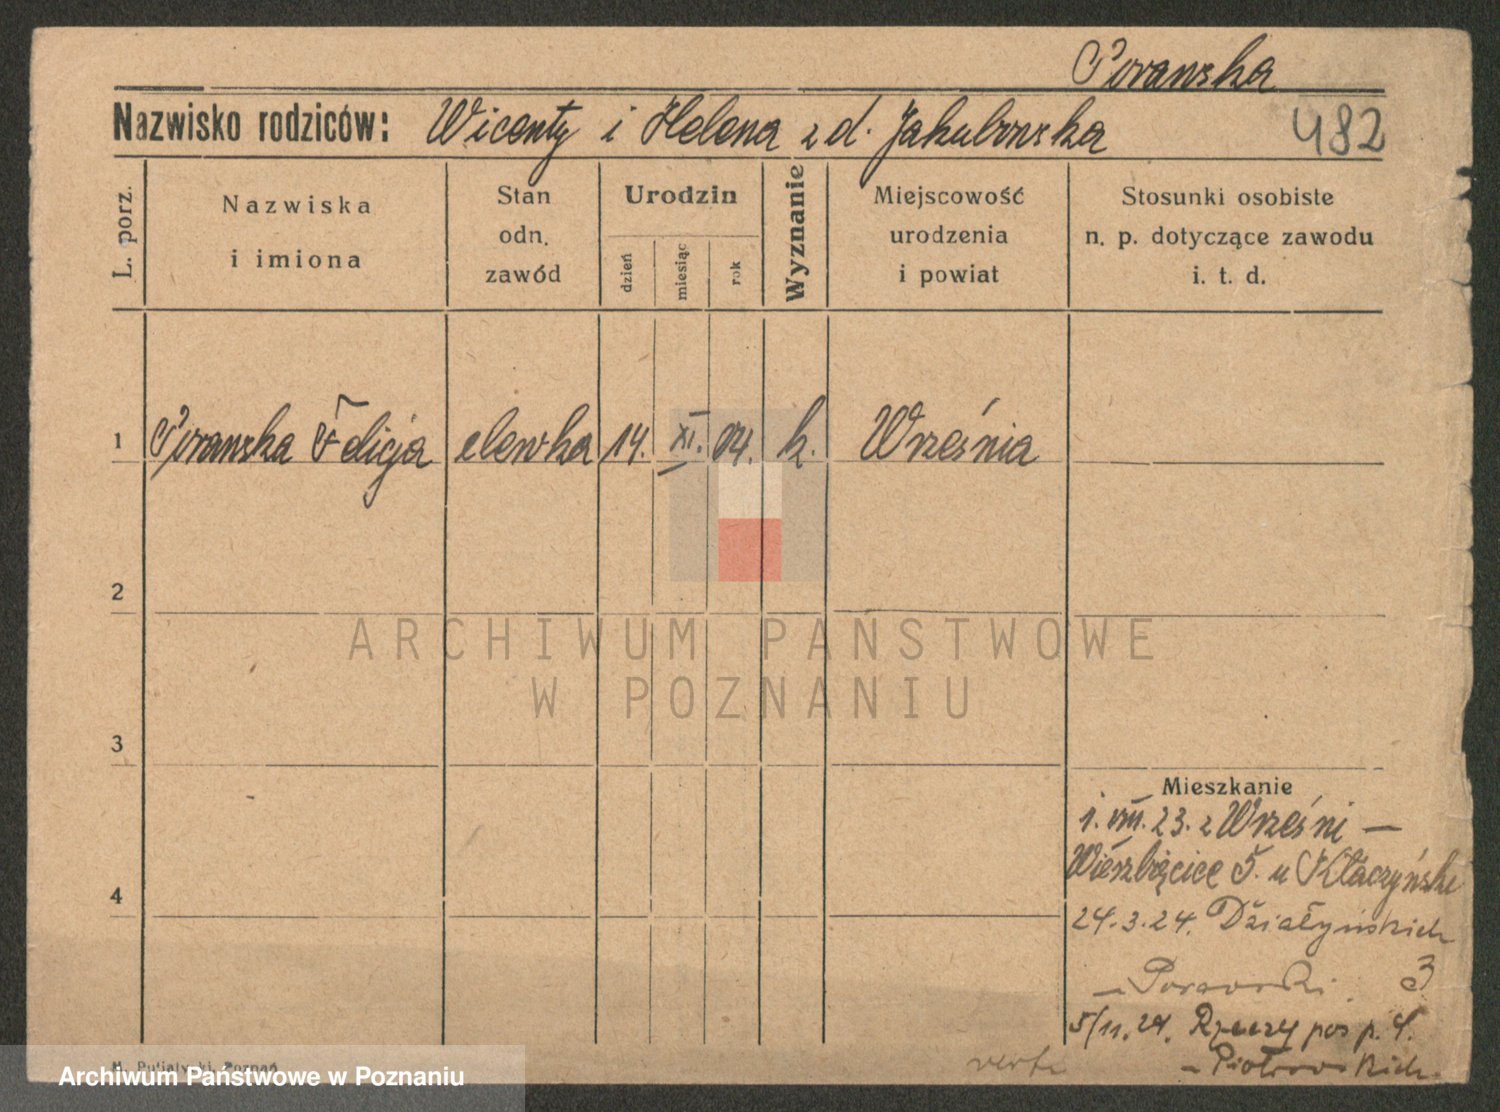 Porańska
Nazwisko rodziców: Wicenty i Helena z d. Jakubowska 482
L. porz.
Nazwiska
i imiona
Stan
odn.
zawód
Urodzin
dzień
miesiąc
rok
Wyznanie
Miejscowość
urodzenia
i powiat
Stosunki osobiste
n. p. dotyczące zawodu
i. t. d.
1 Porańska Felicja elewka 14. XI. 04. k. Września
2
ARCHIWUM PAŃSTWOWE
W POZNANIU
3
4
Mieszkanie
1. VIII. 23. z Wrześni —
Wierzbięcice 5. u
24.3.24. Działyńskich
3
5/11.24. Rzeczypos p. 4.
verte
Poznań
Archiwum Państwowe w Poznaniu